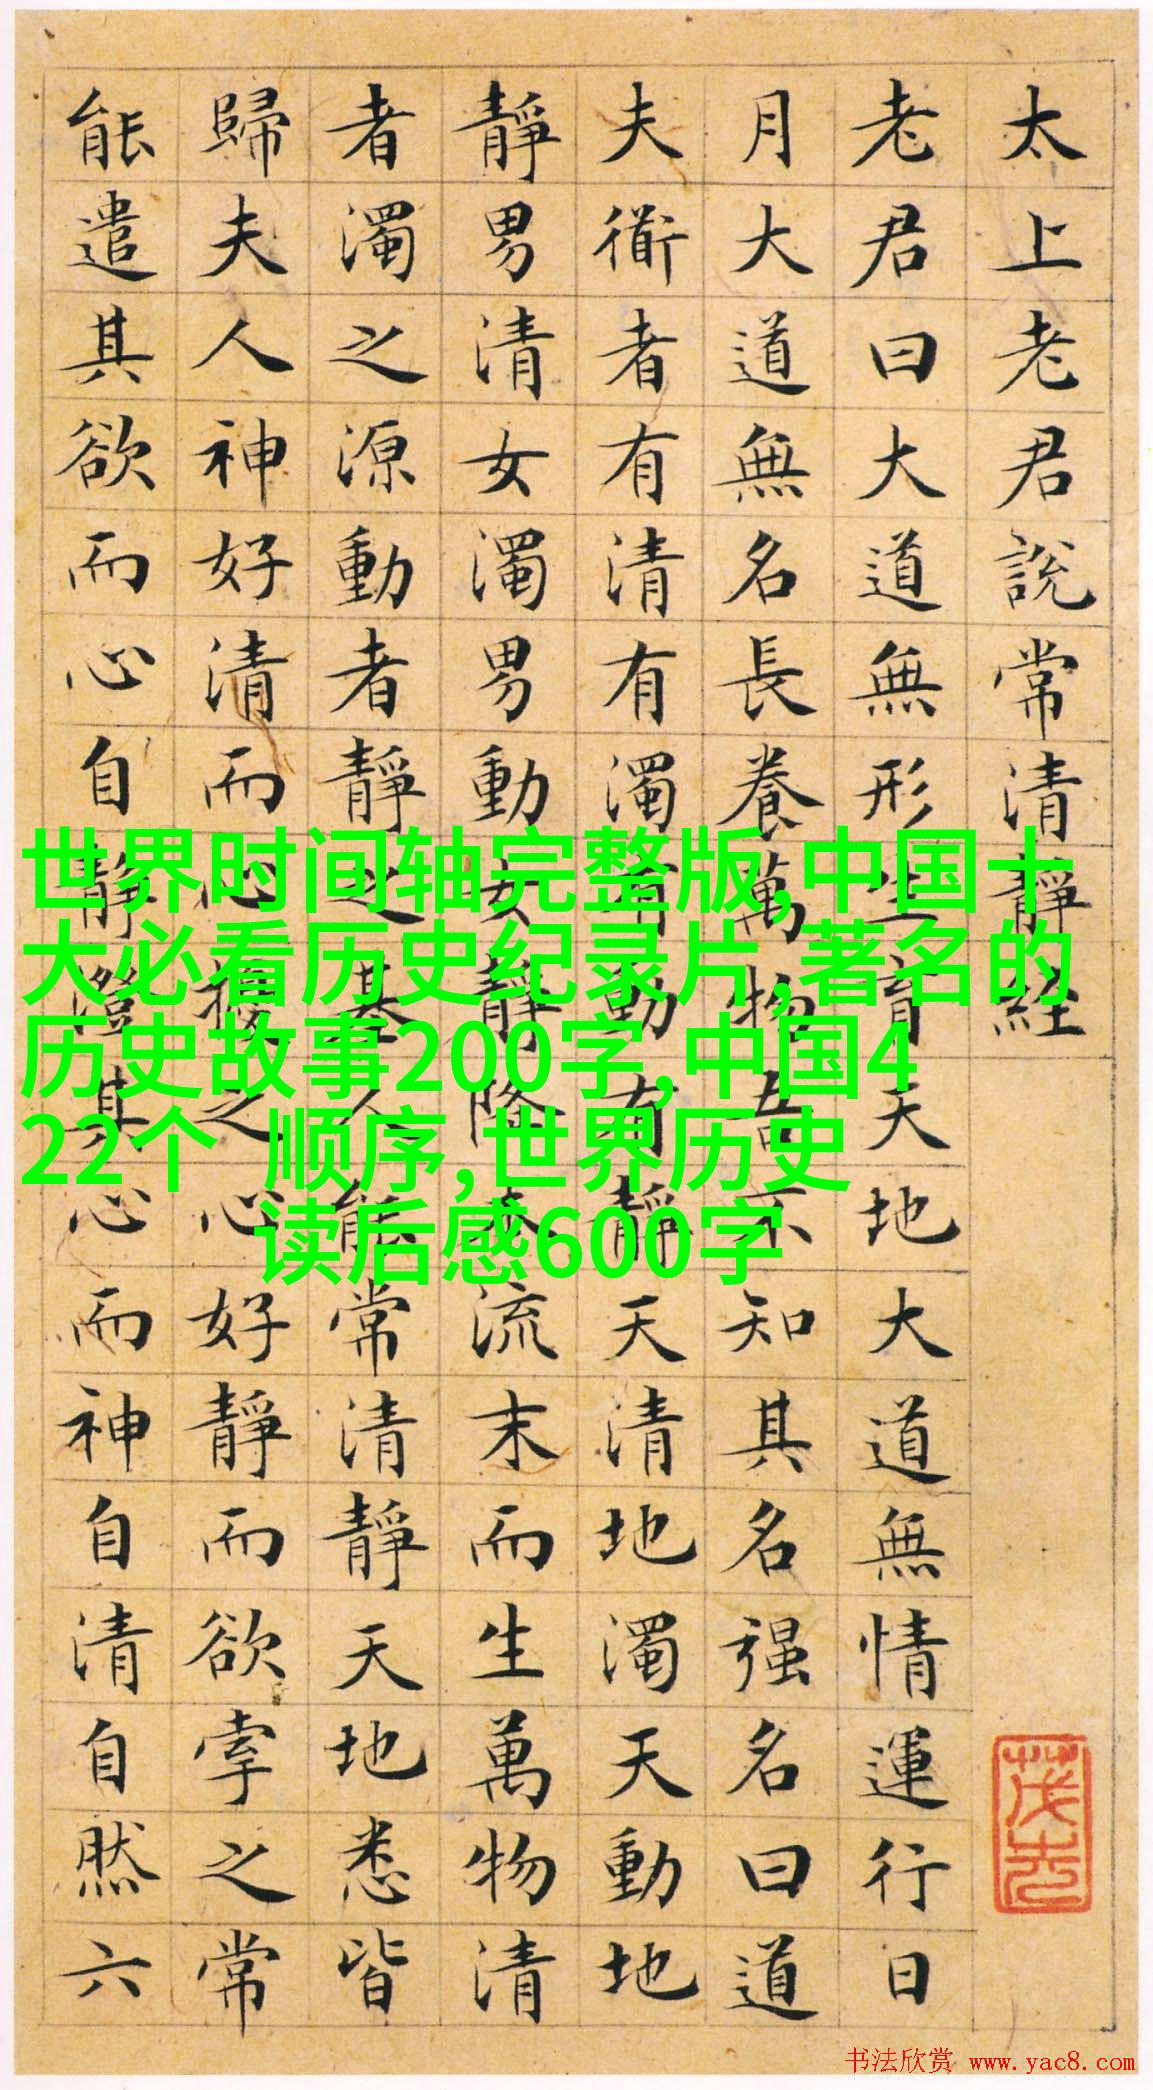 太上老君說常清靜経
老君曰大道無形生育天地大道無情運行日
月大道無名長養萬物吾不知其名强名曰道
夫衜者有清有濁有動有靜天清地濁天動地
靜男清女濁男動女靜降本流末而生萬物清
者濁之源動者靜之基人能常清靜天地悉皆
歸夫人神好清而心擾之心好靜而欲牽之常
能遣其欲而心自靜澄其心而神自清自然六
世界时间轴完整版,中国十
大必看历史纪录片,著名的
历史故事200字,中国4
22个 顺序,世界历史
读后感600字
书法欣赏 www.yac8.com